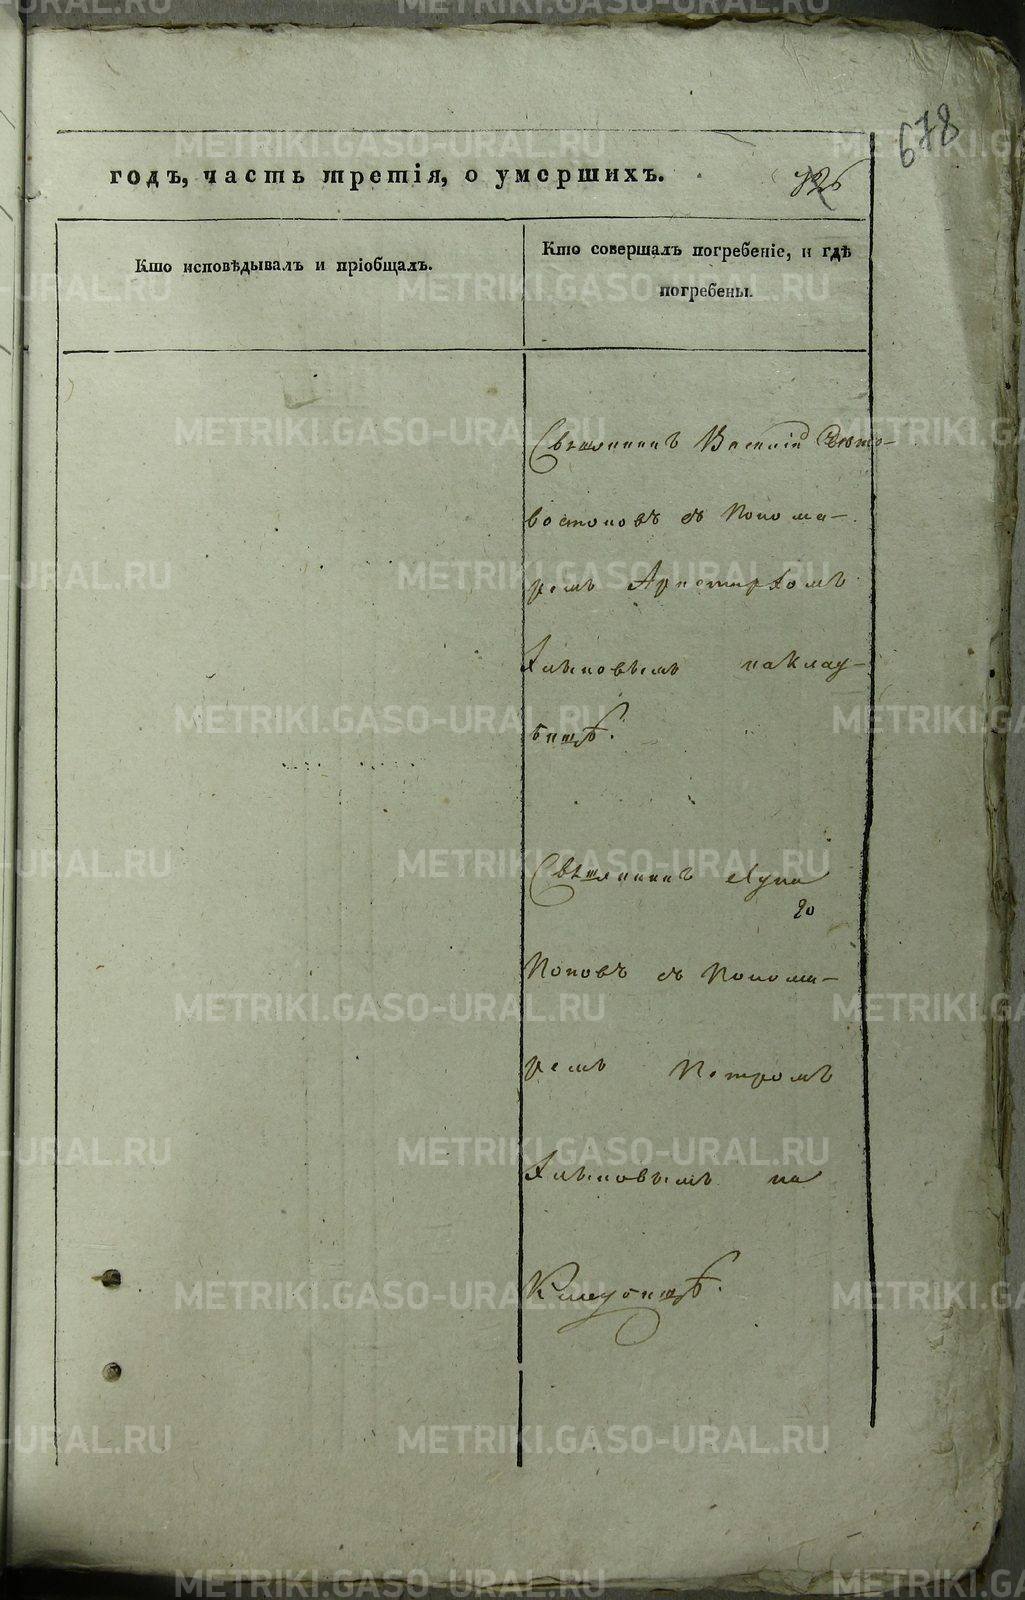 678
годъ, часть третія, о умершихъ.
Кто исповѣдывалъ и пріобщалъ.
Кто совершалъ погребеніе, и гдѣ
погребены.
Свѣщенникъ Василій
востоковъ съ Понома-
ремъ Аристархомъ
наклад-
бищѣ.
Свѣщенникъ Лука
Поповъ съ Понома-
ремъ Петромъ
на
Кладбищѣ.
METRIKI.GASO-URAL.RU